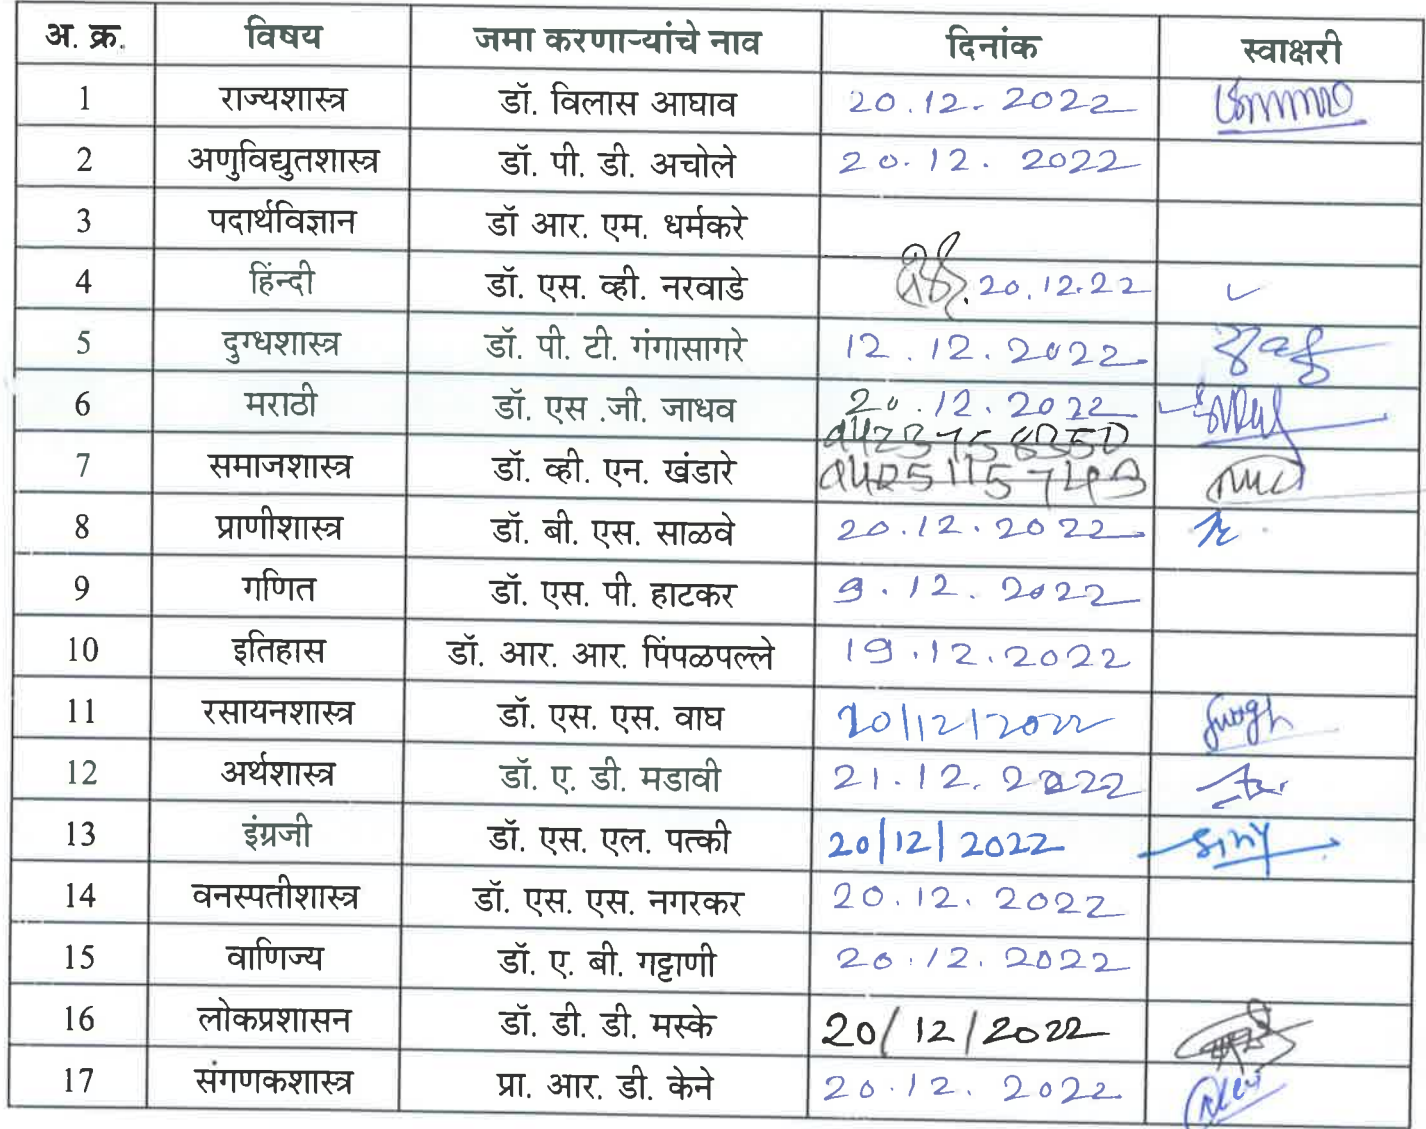 अ. क्र. विषय जमा करणाऱ्यांचे नाव दिनांक स्वाक्षरी
1 राज्यशास्त्र डॉ. विलास आघाव 20.12.2022
2 अणुविद्युतशास्त्र डॉ. पी. डी. अचोले 20.12.2022
3 पदार्थविज्ञान डॉ आर. एम. धर्मकरे
4 हिंन्दी डॉ. एस. व्ही. नरवाडे 20.12.22
5 दुग्धशास्त्र डॉ. पी. टी. गंगासागरे 12.12.2022
6 मराठी डॉ. एस .जी. जाधव 20.12.2022
7 समाजशास्त्र डॉ. व्ही. एन. खंडारे
8 प्राणीशास्त्र डॉ. बी. एस. साळवे 20.12.2022
9 गणित डॉ. एस. पी. हाटकर 9.12.2022
10 इतिहास डॉ. आर. आर. पिंपळपल्ले 19.12.2022
11 रसायनशास्त्र डॉ. एस. एस. वाघ 20/12/2022
12 अर्थशास्त्र डॉ. ए. डी. मडावी 21.12.2022
13 इंग्रजी डॉ. एस. एल. पत्की 20/12/2022
14 वनस्पतीशास्त्र डॉ. एस. एस. नगरकर 20.12.2022
15 वाणिज्य डॉ. ए. बी. गट्टाणी 20.12.2022
16 लोकप्रशासन डॉ. डी. डी. मस्के 20/12/2022
17 संगणकशास्त्र प्रा. आर. डी. केने 20.12.2022